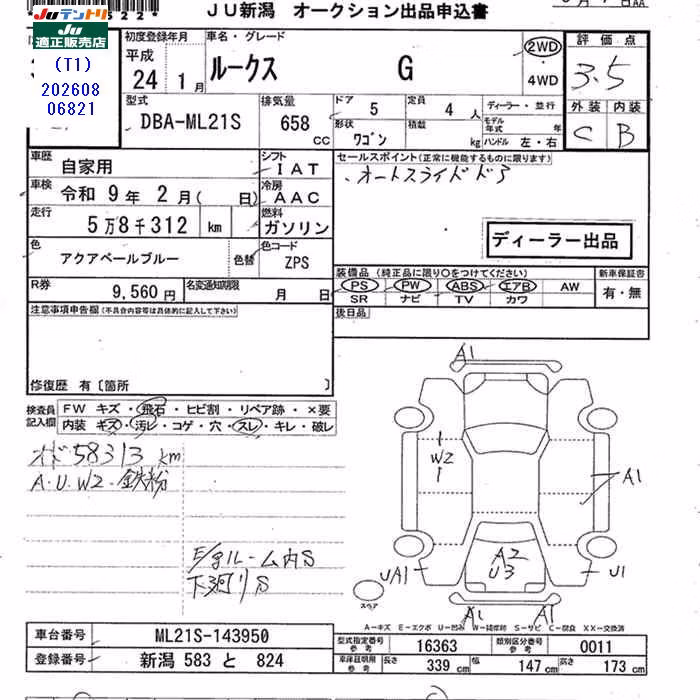 JU新潟 オークション出品申込書
Juテントリ
JU
適正販売店
(T1)
202608
06821
初度登録年月
平成
24 1月
車名・グレード
ルークス G
2WD
4WD
評価点
3.5
外装 内装
C B
型式
DBA-ML21S
排気量
658 cc
ドア 5
定員 4 人
ディーラー・並行
形状 ワゴン
積載 kg
モデル年式 年
ハンドル 左・右
車歴 自家用
シフト I AT
車検 令和 9年 2月( 日)
冷房 A AC
走行 5万8千312 km
燃料 ガソリン
色 アクアペールブルー
色替
色コード ZPS
R券 9,560円
名変通知期限 月 日
セールスポイント(正常に機能するものに限ります)
オートスライドドア
ディーラー出品
装備品(純正品に限り○をつけてください)
新車保証書
PS PW ABS エアB AW
SR ナビ TV カワ
有・無
後日品
注意事項申告欄(不具合内容等は具体的に記入して下さい)
修復歴 有〔箇所 〕
検査員記入欄
FW キズ・飛石・ヒビ割・リペア跡・×要
内装 キズ・汚レ・コゲ・穴・スレ・キレ・破レ
オド58313km
A・U・W2・鉄粉
E/gルーム内S
下廻りS
A1
W2
A1
A2
U3
UA1
U1
A1
A1
スペア
A―キズ E―エクボ U―凹み W―補修跡 S―サビ C―腐食 XX―交換済
車台番号 ML21S-143950
登録番号 新潟 583 と 824
型式指定番号参考 16363
類別区分番号参考 0011
車庫証明用参考
長さ 339 cm
幅 147 cm
高さ 173 cm